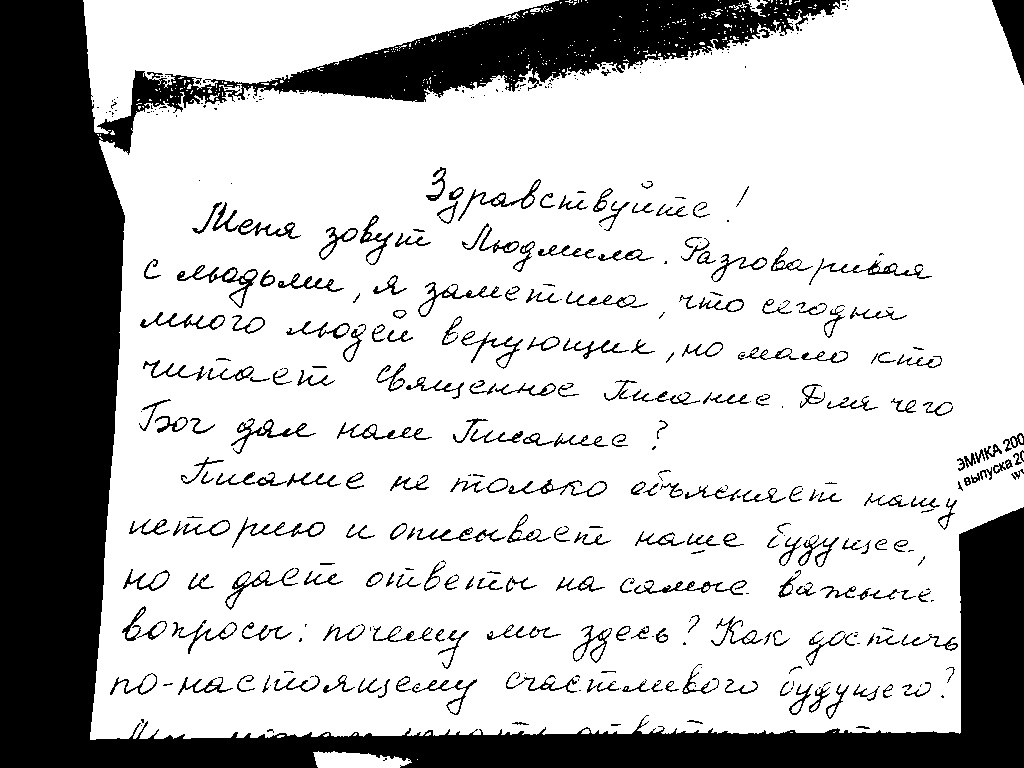 Здравствуйте!
Меня зовут Людмила. Разговаривая
с людьми, я заметила, что сегодня
много людей верующих, но мало кто
читает Священное Писание. Для чего
Бог дал нам Писание?
Писание не только объясняет нашу
историю и описывает наше будущее,
но и дает ответы на самые важные
вопросы: почему мы здесь? Как достичь
по-настоящему счастливого будущего?
ЭМИКА 200
выпуска 20